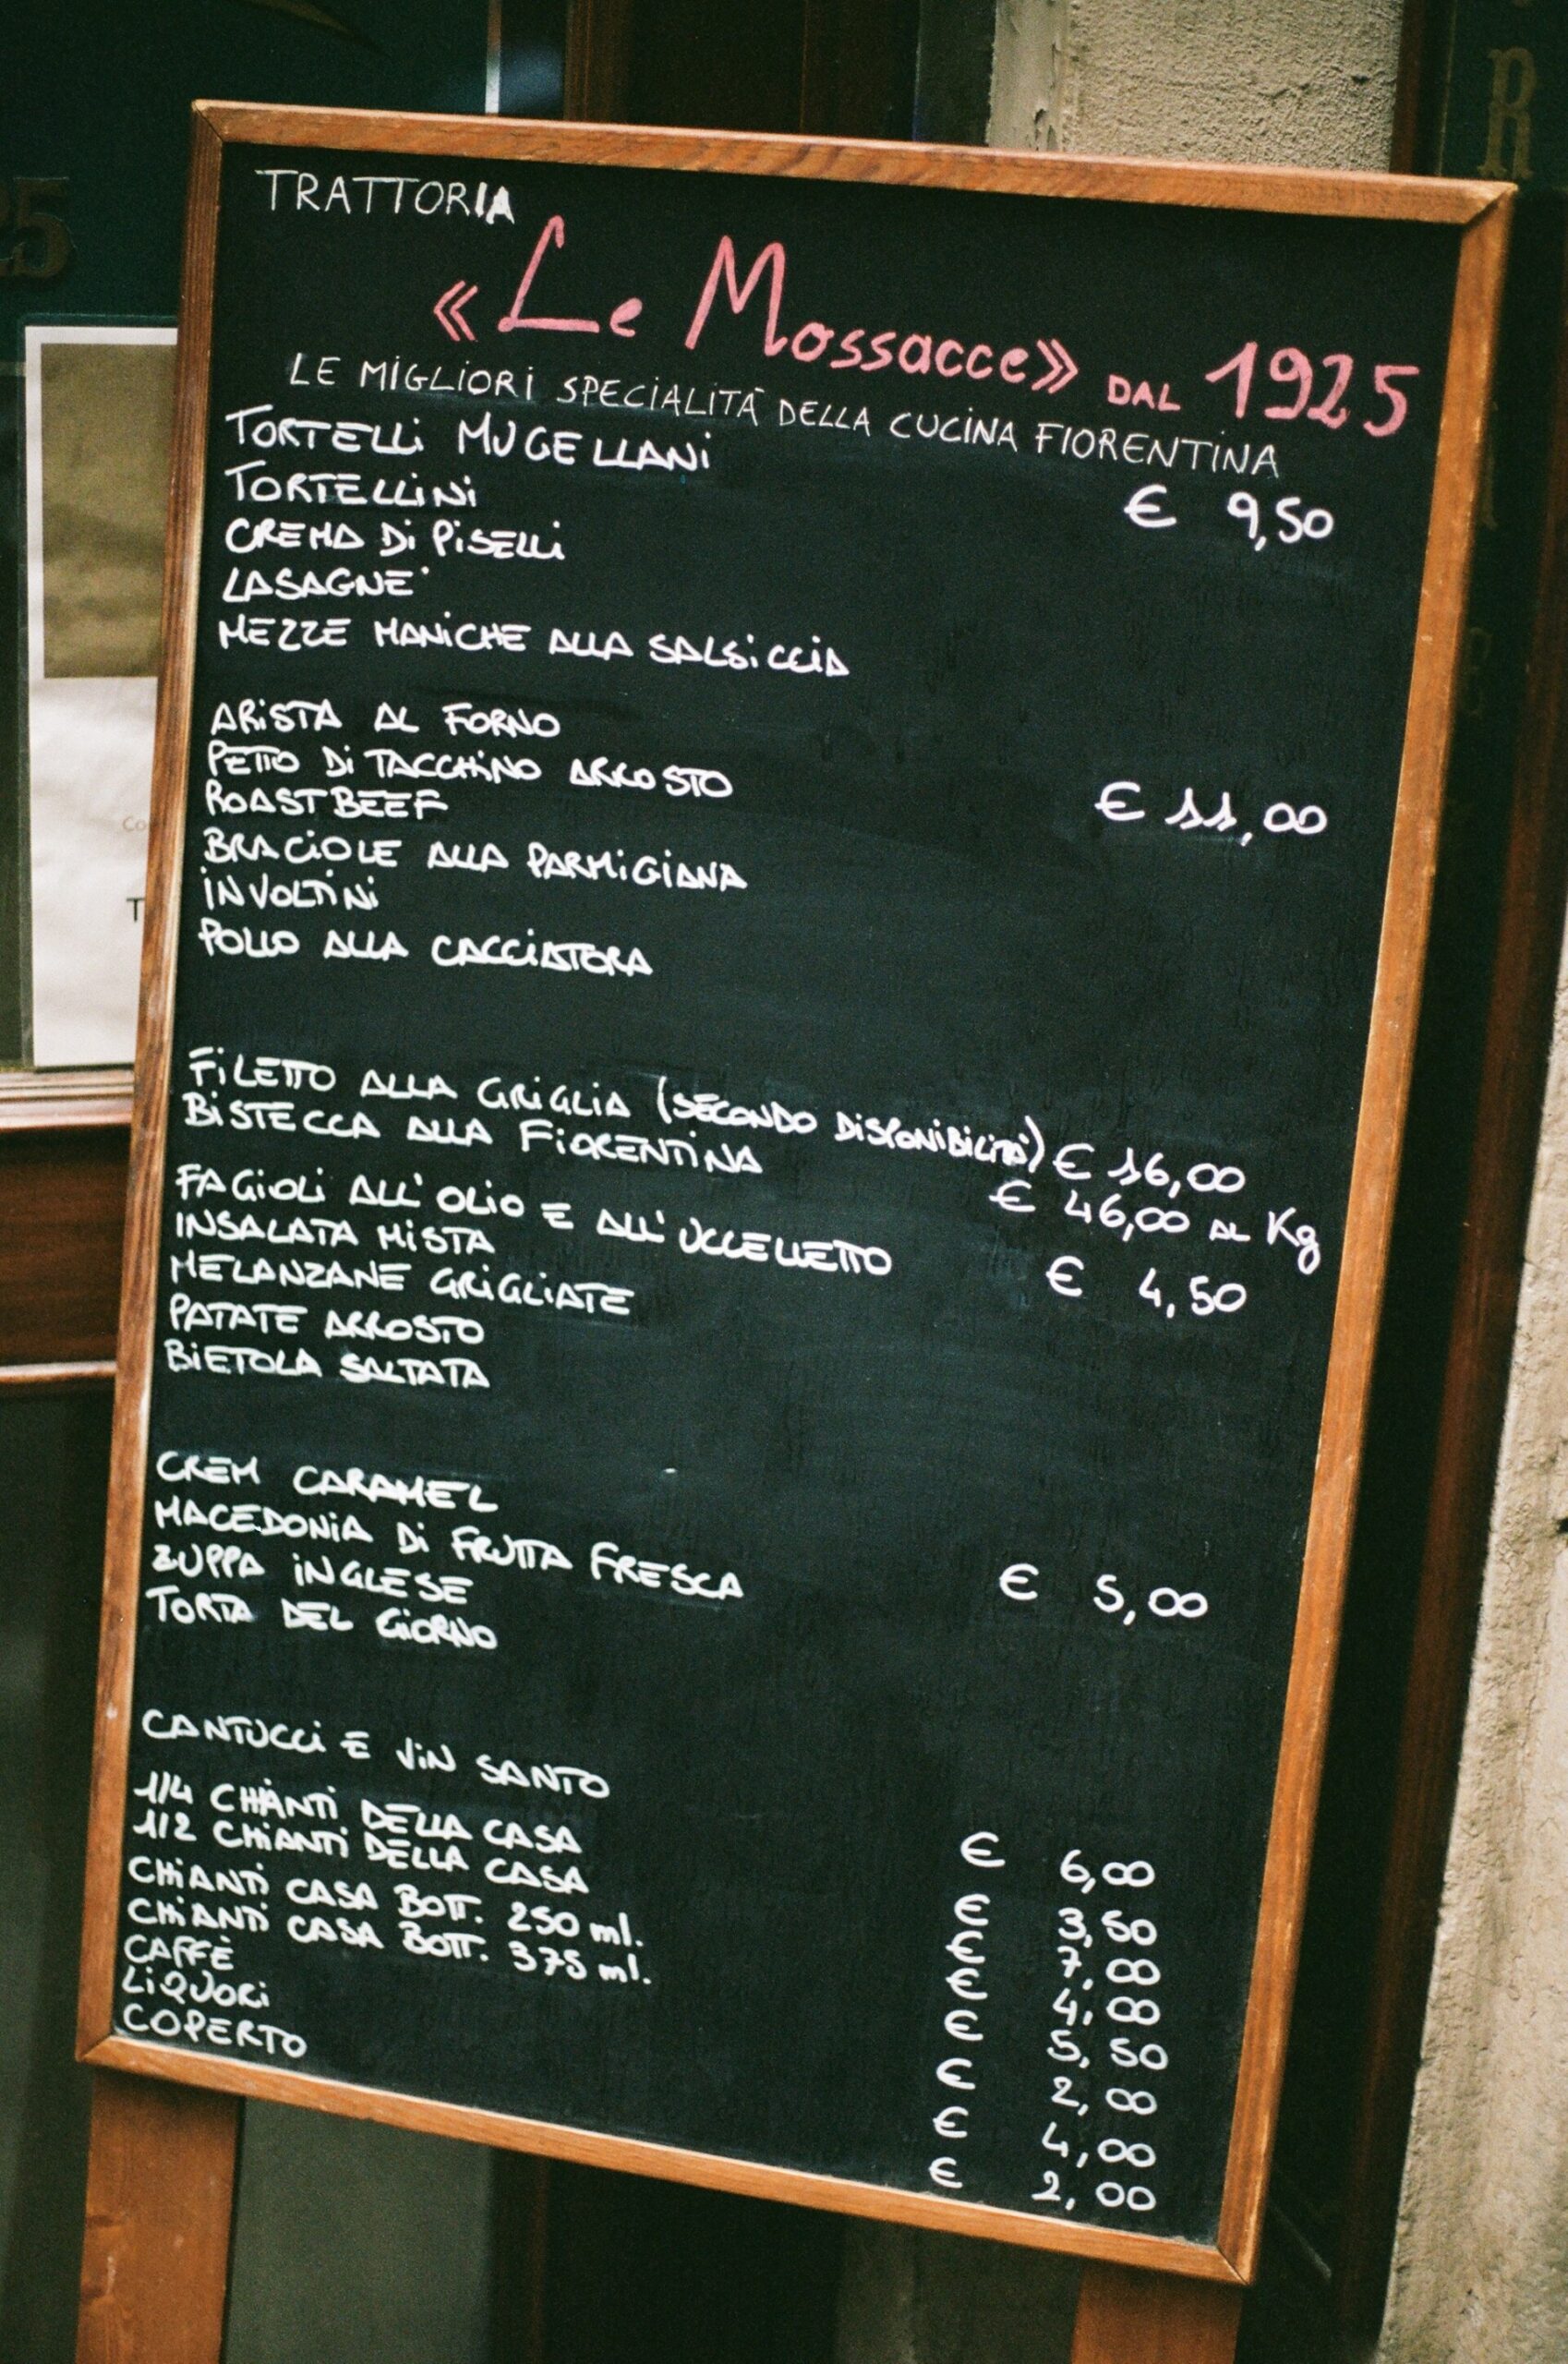 TRATTORIA
«Le Mossacce» DAL 1925
LE MIGLIORI SPECIALITÀ DELLA CUCINA FIORENTINA
TORTELLI MUGELLANI € 9,50
TORTELLINI
CREMA DI PISELLI
LASAGNE
MEZZE MANICHE ALLA SALSICCIA
ARISTA AL FORNO € 11,00
PETTO DI TACCHINO ARROSTO
ROASTBEEF
BRACIOLE ALLA PARMIGIANA
INVOLTINI
POLLO ALLA CACCIATORA
FILETTO ALLA GRIGLIA (SECONDO DISPONIBILITÀ) € 16,00
BISTECCA ALLA FIORENTINA € 46,00 AL Kg
FAGIOLI ALL'OLIO E ALL'UCCELLETTO € 4,50
INSALATA MISTA
MELANZANE GRIGLIATE
PATATE ARROSTO
BIETOLA SALTATA
CREM CARAMEL
MACEDONIA DI FRUTTA FRESCA € 5,00
ZUPPA INGLESE
TORTA DEL GIORNO
CANTUCCI E VIN SANTO € 6,00
1/4 CHIANTI DELLA CASA € 3,50
1/2 CHIANTI DELLA CASA € 7,00
CHIANTI CASA BOTT. 250 ml. € 4,00
CHIANTI CASA BOTT. 375 ml. € 5,50
CAFFÈ € 2,00
LIQUORI € 4,00
COPERTO € 2,00